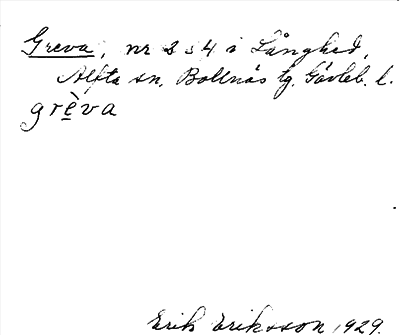 Greva, nr 3 o 4 i Långhed,
Alfta sn, Bollnäs tg. Gävleb. l.
grèva
Erik Eriksson 1929.